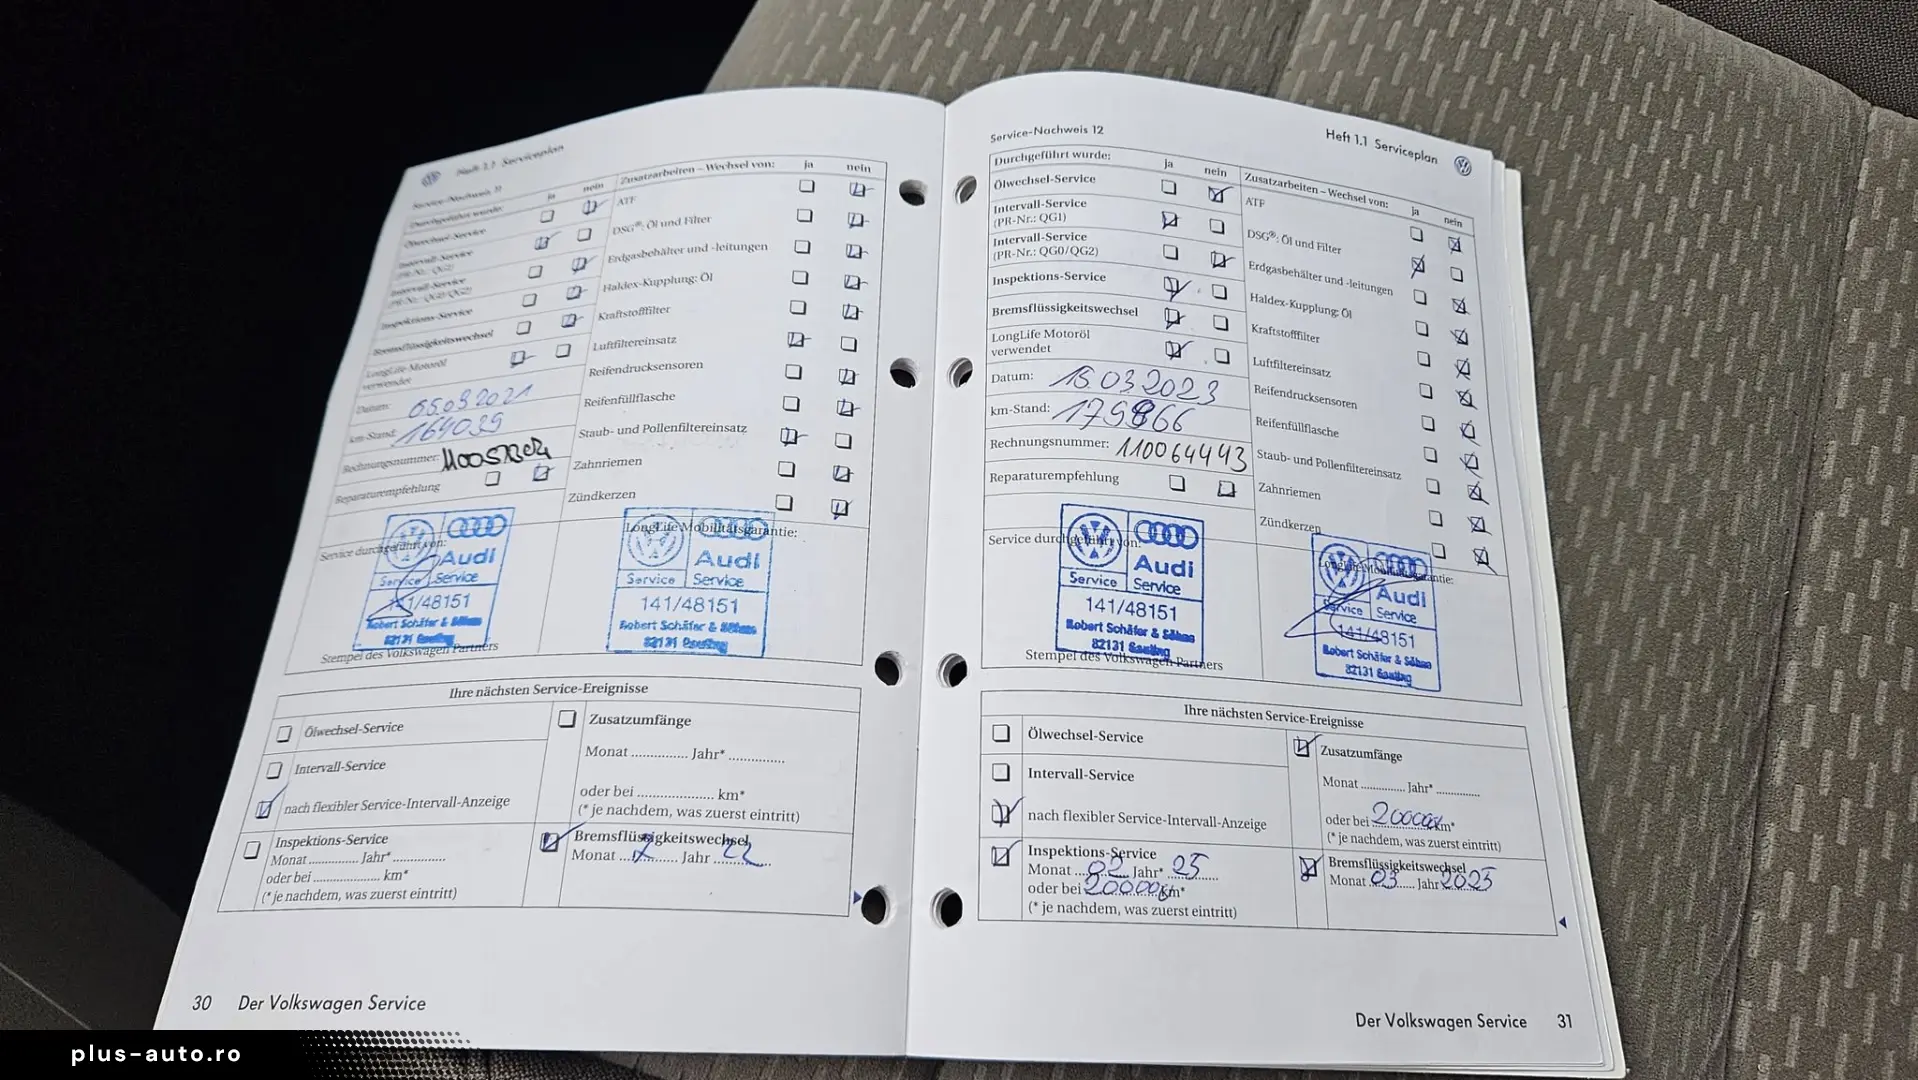 Heft 1.1 Serviceplan
Service-Nachweis 11
Durchgeführt wurde:
ja
nein
Ölwechsel-Service
Intervall-Service
(PR-Nr.: QG1)
Intervall-Service
(PR-Nr.: QG0/QG2)
Inspektions-Service
Bremsflüssigkeitswechsel
LongLife Motoröl
verwendet
Datum: 05.03.2021
km-Stand: 164035
Rechnungsnummer:
Reparaturempfehlung
Zusatzarbeiten – Wechsel von:
ja
nein
ATF
DSG®: Öl und Filter
Erdgasbehälter und -leitungen
Haldex-Kupplung: Öl
Kraftstofffilter
Luftfiltereinsatz
Reifendrucksensoren
Reifenfüllflasche
Staub- und Pollenfiltereinsatz
Zahnriemen
Zündkerzen
Service durchgeführt von:
Audi
Service Service
141/48151
Robert Schäfer & Söhne
82131 Gauting
Stempel des Volkswagen Partners
LongLife Mobilitätsgarantie:
Audi
Service Service
141/48151
Robert Schäfer & Söhne
82131 Gauting
Ihre nächsten Service-Ereignisse
Ölwechsel-Service
Intervall-Service
nach flexibler Service-Intervall-Anzeige
Inspektions-Service
Monat .............. Jahr* ..............
oder bei .................... km*
(* je nachdem, was zuerst eintritt)
Zusatzumfänge
Monat ............... Jahr* ...............
oder bei .................... km*
(* je nachdem, was zuerst eintritt)
Bremsflüssigkeitswechsel
Monat ... Jahr 22
30 Der Volkswagen Service
Service-Nachweis 12
Heft 1.1 Serviceplan
Durchgeführt wurde:
ja
nein
Ölwechsel-Service
Intervall-Service
(PR-Nr.: QG1)
Intervall-Service
(PR-Nr.: QG0/QG2)
Inspektions-Service
Bremsflüssigkeitswechsel
LongLife Motoröl
verwendet
Datum: 15.03.2023
km-Stand: 179866
Rechnungsnummer: 110064443
Reparaturempfehlung
Zusatzarbeiten – Wechsel von:
ja
nein
ATF
DSG®: Öl und Filter
Erdgasbehälter und -leitungen
Haldex-Kupplung: Öl
Kraftstofffilter
Luftfiltereinsatz
Reifendrucksensoren
Reifenfüllflasche
Staub- und Pollenfiltereinsatz
Zahnriemen
Zündkerzen
Service durchgeführt von:
Audi
Service Service
141/48151
Robert Schäfer & Söhne
82131 Gauting
Stempel des Volkswagen Partners
LongLife-Mobilitätsgarantie:
Audi
Service Service
141/48151
Robert Schäfer & Söhne
82131 Gauting
Ihre nächsten Service-Ereignisse
Ölwechsel-Service
Intervall-Service
nach flexibler Service-Intervall-Anzeige
Inspektions-Service
Monat 02 Jahr* 25
oder bei 20000 km*
(* je nachdem, was zuerst eintritt)
Zusatzumfänge
Monat .............. Jahr* ..............
oder bei 20000 km*
(* je nachdem, was zuerst eintritt)
Bremsflüssigkeitswechsel
Monat 03 Jahr 2025
Der Volkswagen Service 31
plus-auto.ro